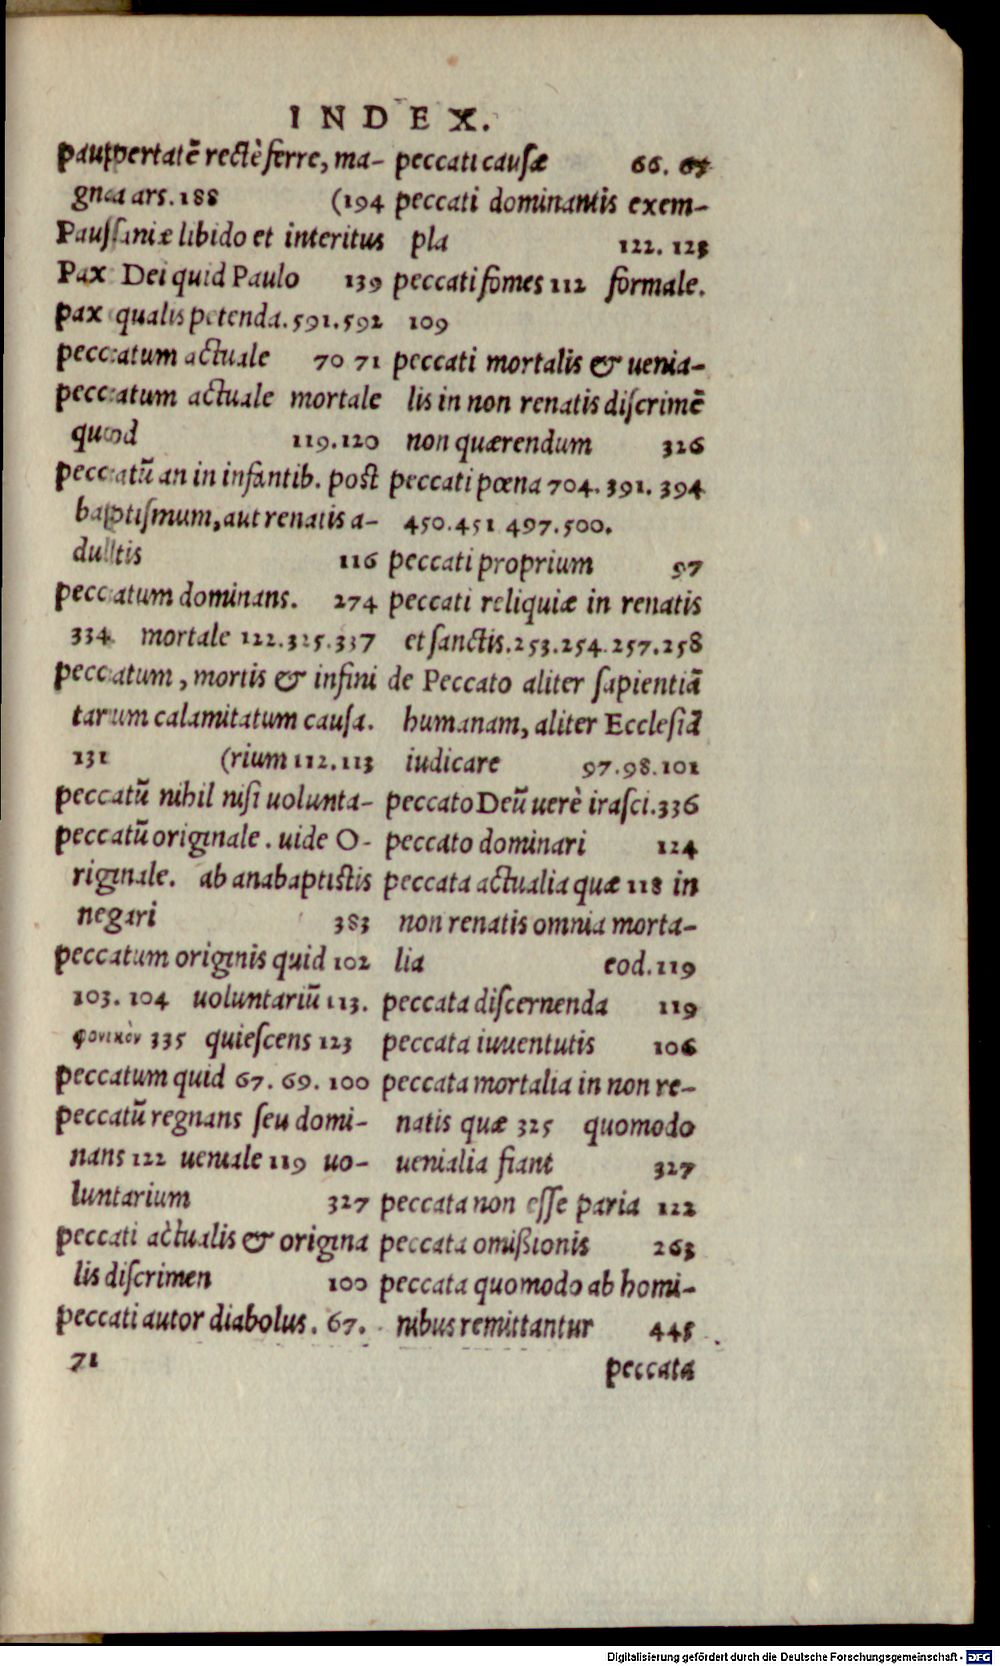 INDEX.
paupertatẽ rectè ferre, ma-
gna ars. 188 (194
Paussaniæ libido et interitus
Pax Dei quid Paulo 139
pax qualis petenda. 591. 592
peccatum actuale 70 71
peccatum actuale mortale
quod 119. 120
peccatũ an in infantib. post
baptismum, aut renatis a-
dultis 116
peccatum dominans. 274
334. mortale 122. 325. 337
peccatum, mortis & infini
tarum calamitatum causa.
131 (rium 112. 113
peccatũ nihil nisi uolunta-
peccatũ originale. uide O-
riginale. ab anabaptistis
negari 383
peccatum originis quid 102
103. 104 uoluntariũ 113.
φονικὸν 335 quiescens 123
peccatum quid 67. 69. 100
peccatũ regnans seu domi-
nans 122 ueniale 119 uo-
luntarium 327
peccati actualis & origina
lis discrimen 100
peccati autor diabolus. 67.
71
peccati causæ 66. 67
peccati dominantis exem-
pla 122. 123
peccati fomes 112 formale.
109
peccati mortalis & uenia-
lis in non renatis discrimẽ
non quærendum 326
peccati pœna 704. 391. 394
450. 451 497. 500.
peccati proprium 97
peccati reliquiæ in renatis
et sanctis. 253. 254. 257. 258
de Peccato aliter sapientiã
humanam, aliter Ecclesiã
iudicare 97. 98. 101
peccato Deũ uerè irasci. 336
peccato dominari 124
peccata actualia quæ 118 in
non renatis omnia morta-
lia eod. 119
peccata discernenda 119
peccata iuuentutis 106
peccata mortalia in non re-
natis quæ 325 quomodo
uenialia fiant 327
peccata non esse paria 122
peccata omißionis 263
peccata quomodo ab homi-
nibus remittantur 445
peccata
Digitalisierung gefördert durch die Deutsche Forschungsgemeinschaft - DFG